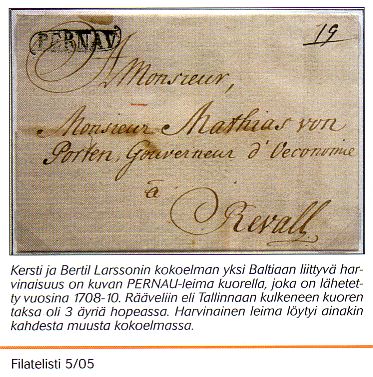 PERNAV
19
A Monsieur,
Monsieur Mathias von
Porten, Gouverneur d'Oeconomie
à
Revall
Kersti ja Bertil Larssonin kokoelman yksi Baltiaan liittyvä har-
vinaisuus on kuvan PERNAU-leima kuorella, joka on lähetet-
ty vuosina 1708-10. Rääveliin eli Tallinnaan kulkeneen kuoren
taksa oli 3 äyriä hopeassa. Harvinainen leima löytyi ainakin
kahdesta muusta kokoelmassa.
Filatelisti 5/05